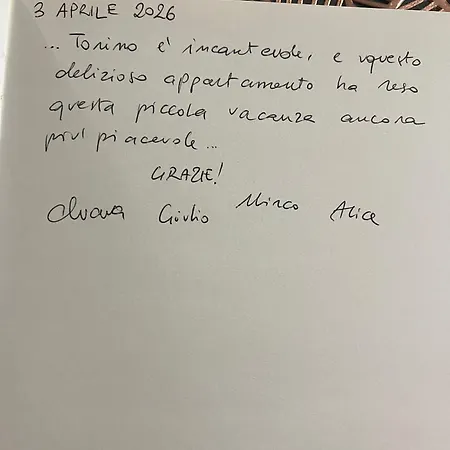 3 APRILE 2026
... Torino è incantevole, e questo
delizioso appartamento ha reso
questa piccola vacanza ancora
più piacevole...
GRAZIE!
Giulio Mirco Alice